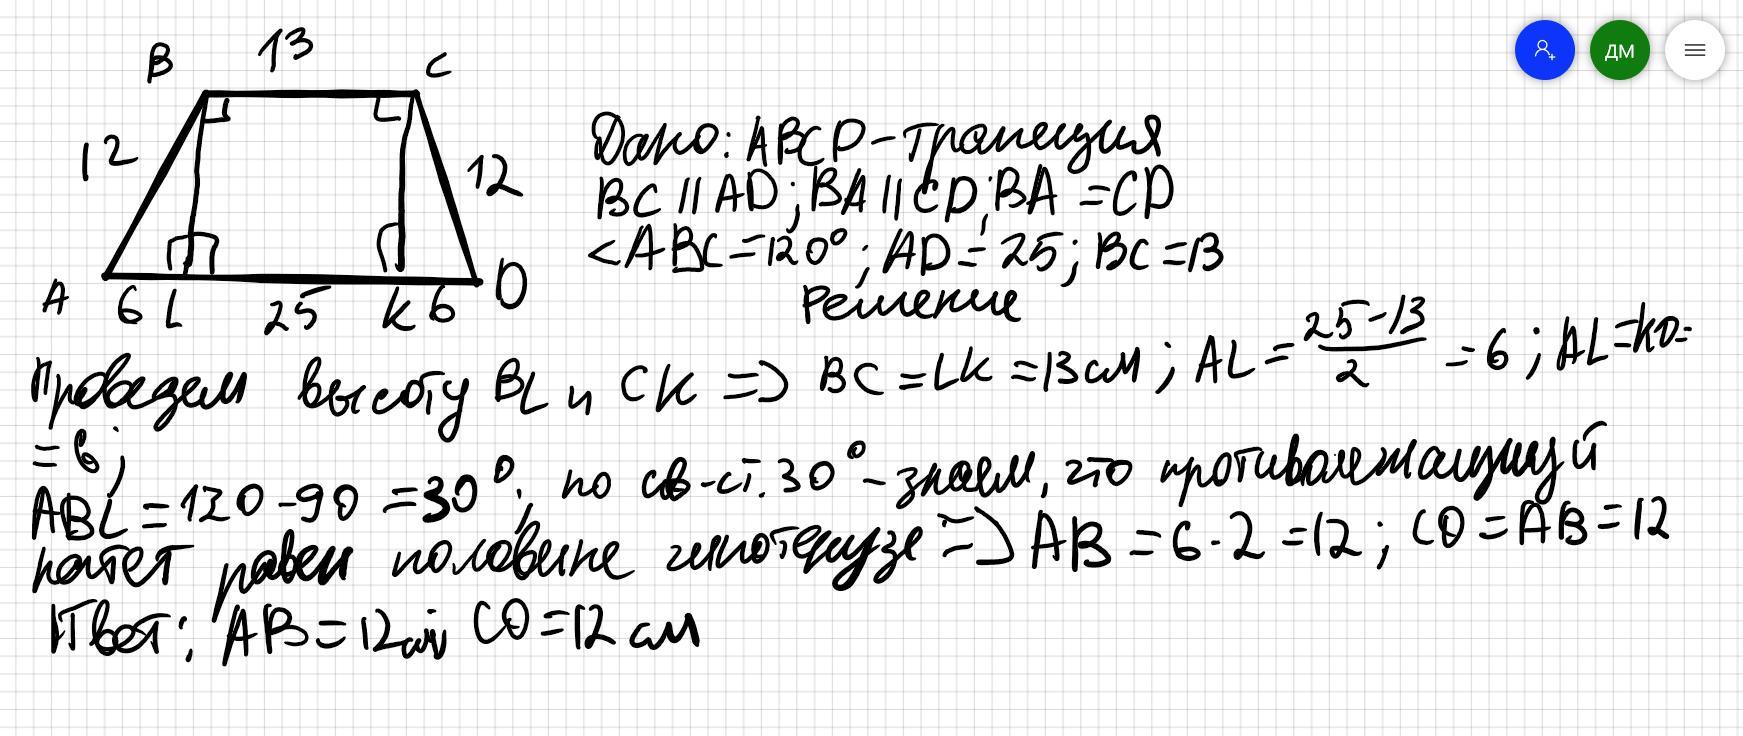 B 13 C
12 12
A 6 L 25 K 6 D
ДМ
Дано: ABCD - трапеция
BC || AD ; BA || CD ; BA = CD
<ABC = 120° ; AD = 25 ; BC = 13
Решение
Проведем высоту BL и CK => BC = LK = 13 см ; AL = 25-13/2 = 6 ; AL = KD =
= 6 ;
ABL = 120 - 90 = 30° ; по св-ст. 30° - знаем, что противолежащий
катет равен половине гипотенузе => AB = 6 · 2 = 12 ; CD = AB = 12
Ответ: AB = 12 см ; CD = 12 см